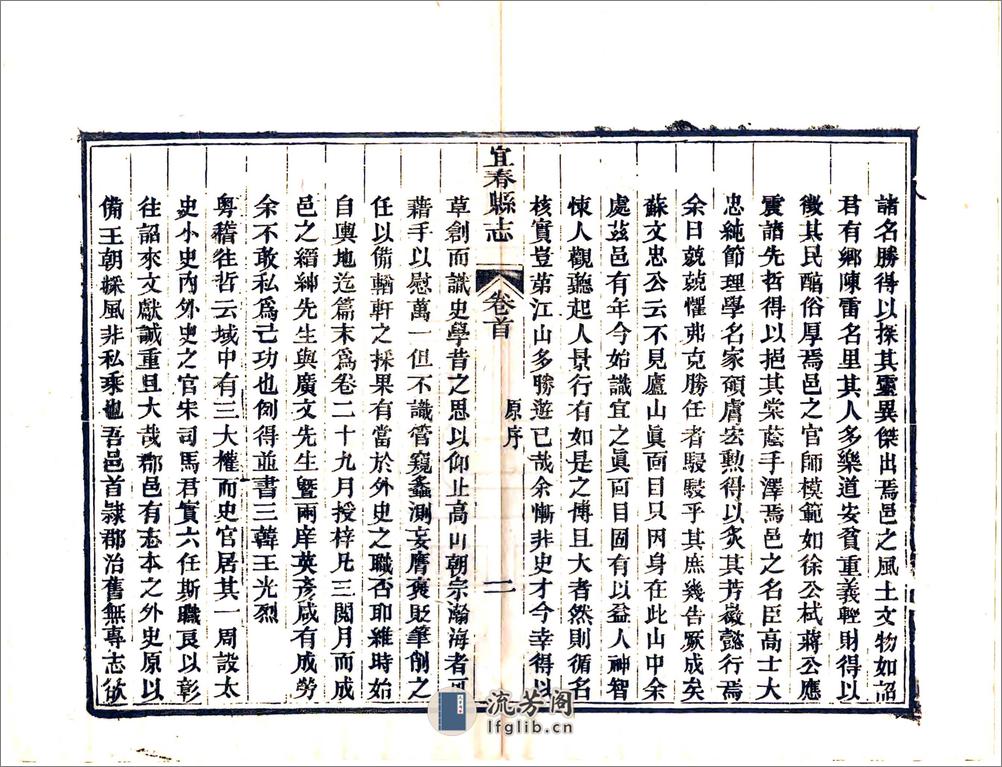 諸名勝得以探其靈異傑出焉邑之風土文物如詔
君有鄉陳雷名里其人多樂道安貧重義輕財得以
徵其民醕俗厚焉邑之官師模範如徐公栻蔣公應
震諸先哲得以挹其棠蔭手澤焉邑之名臣高士大
忠純節理學名家碩膚宏勲得以炙其芳徽懿行焉
余日兢兢懼弗克勝任者駸駸乎其庶幾告厥成矣
蘇文忠公云不見廬山眞面目只因身在此山中余
處茲邑有年今始識宜之眞面目固有以益人神智
悚人觀聽起人景行有如是之博且大者然則循名
核實豈第江山多勝遊已哉余慚非史才今幸得以
宜春縣志 卷首 原序 二
草創而識史學昔之思以仰止高山朝宗瀚海者可
藉手以慰萬一但不識管窺蠡測妄膺褒貶筆削之
任以備輶軒之採果有當於外史之職否耶維時始
自輿地迄篇末爲卷二十九月授梓凡三閱月而成
邑之縉紳先生與廣文先生曁兩庠英彥咸有成勞
余不敢私爲己功也例得並書三韓王光烈
粵稽往哲云域中有三大權而史官居其一周設太
史小史內外史之官宋司馬君實六任斯職良以彰
往詔來文獻誠重且大哉郡邑有志本之外史原以
備王朝採風非私乘也吾邑首隸郡治舊無專志欲
流芳阁
lfglib.cn